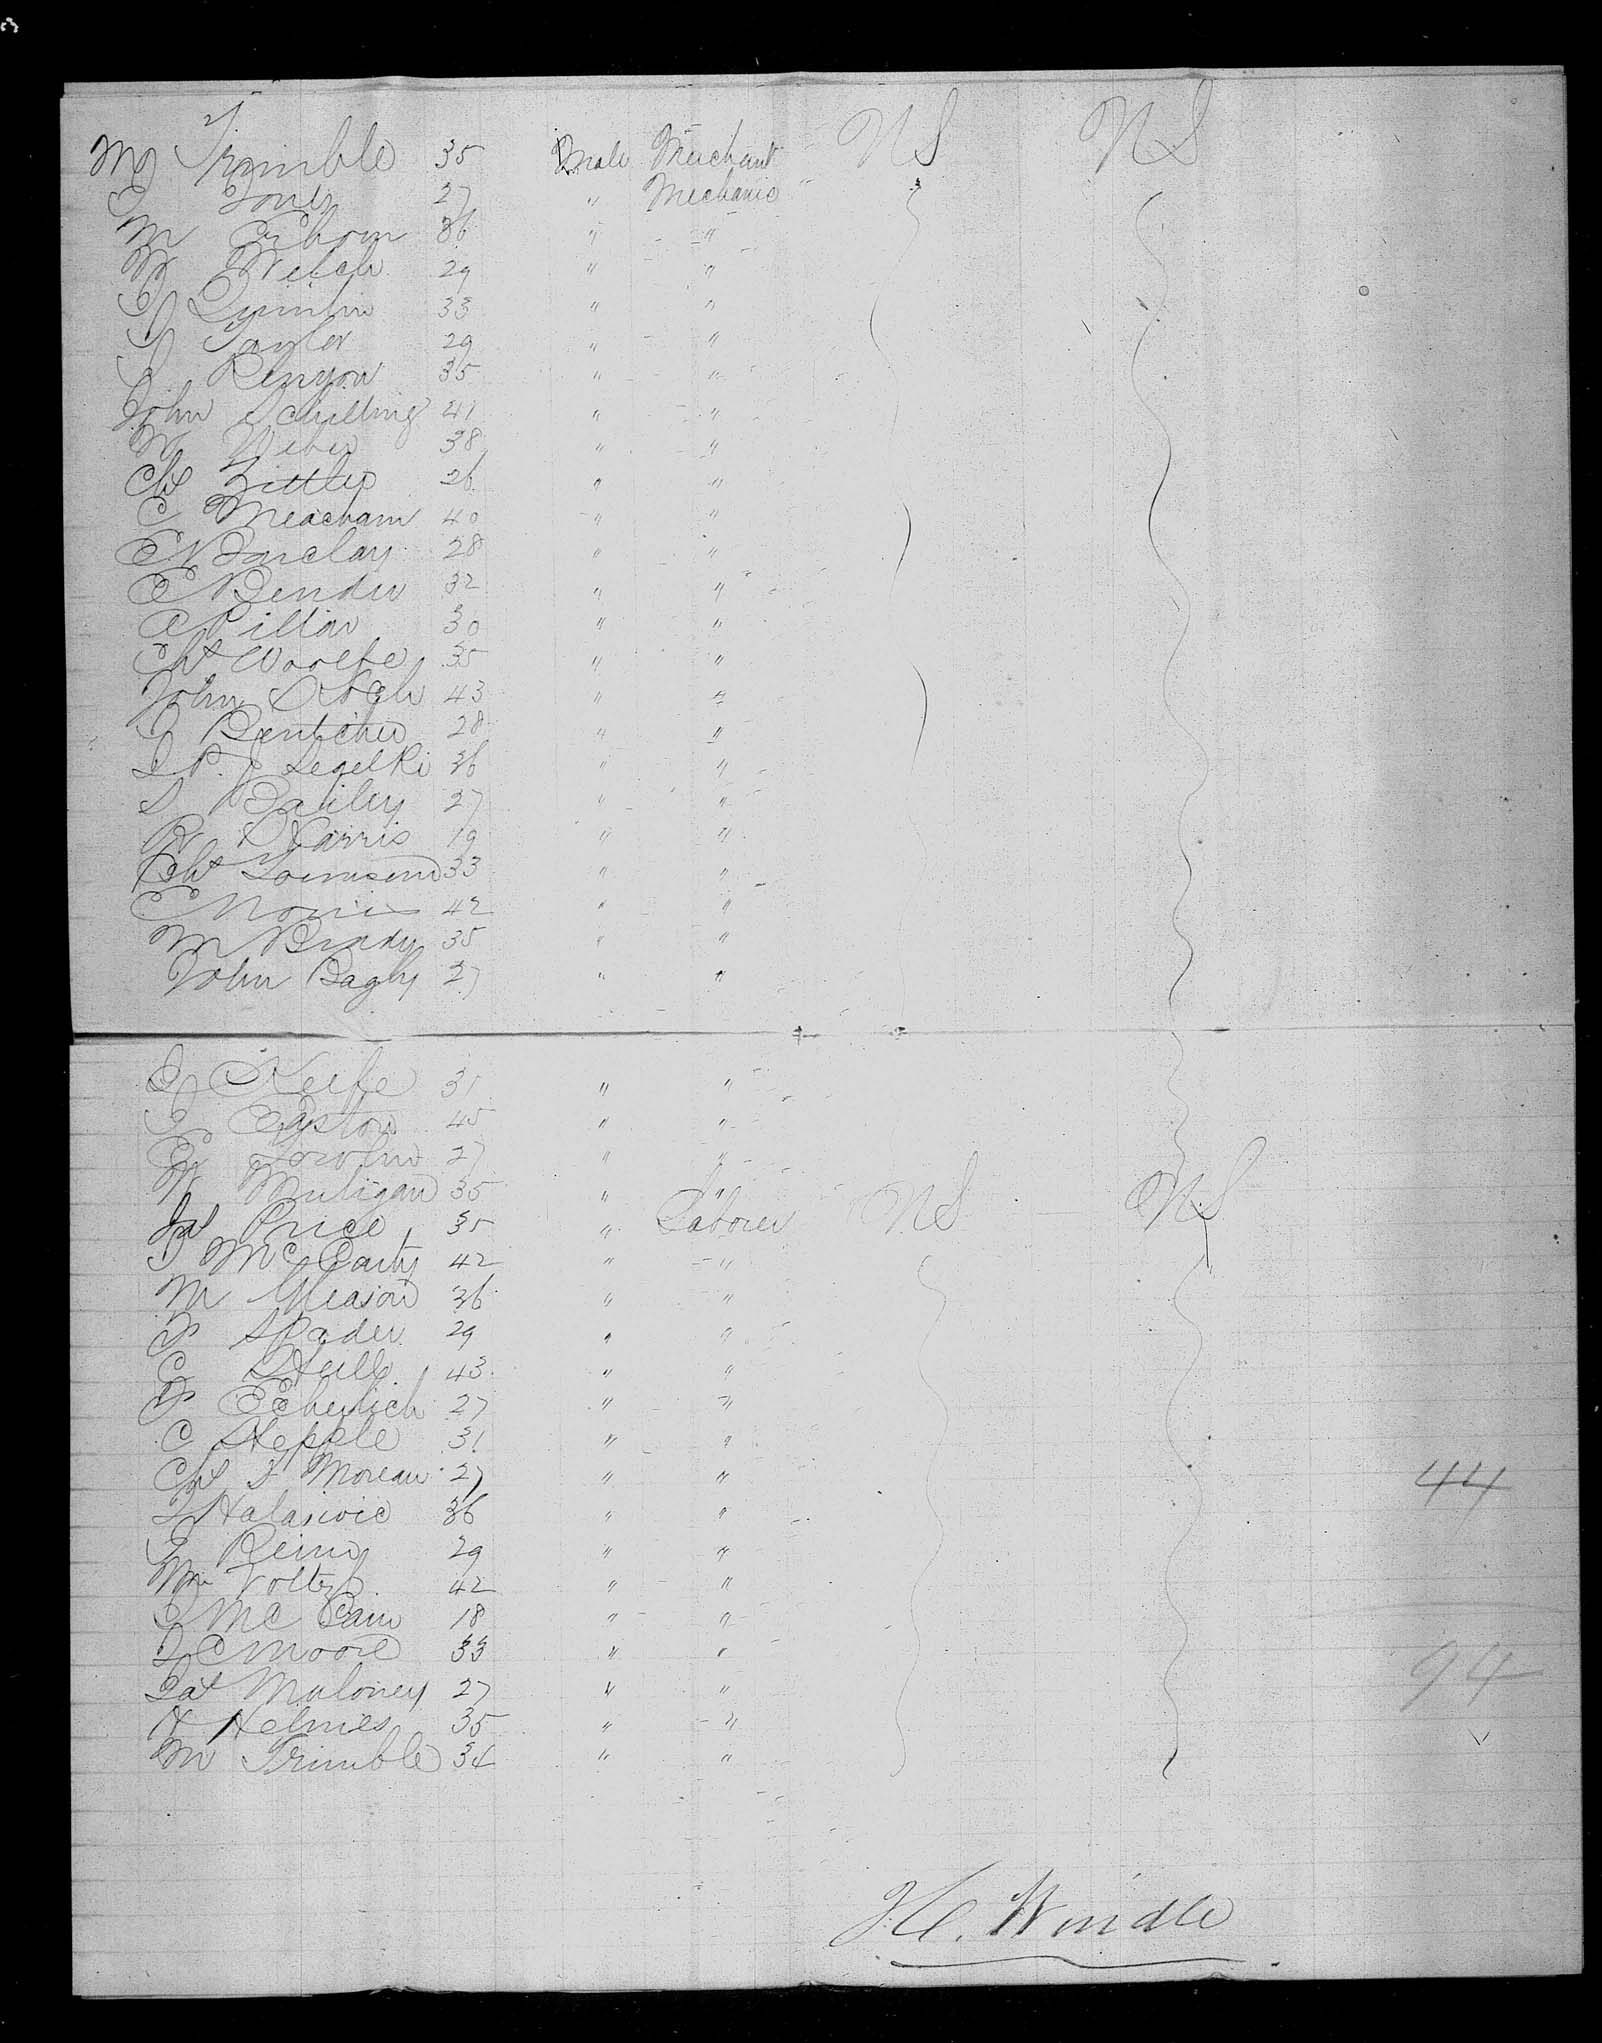 M Trimble 35 Male Merchant N S N S
Jones 27 " Mechanic
M 36 " "
M Welch 29 " "
33 " "
J Taylor 29 " "
J Kenyon 35 " "
John Schilling 41 " "
M Weber 38 " "
Chs Zittler 26 " "
C Meacham 40 " "
C Barclay 28 " "
C Bender 32 " "
C Pillar 30 " "
Chs Woolfe 35 " "
John Koch 43 " "
J 28 " "
J P. J Segelki 36 " "
S Bailey 27 " "
R Harris 19 " "
Chs Townsend 33 " "
C 42 " "
M Brady 35 " "
John Bagly 27 " "
J Keefe 31 " "
J Easton 45 " "
27 " "
W Muligan 35 " "
Jas Price 35 " Laborer N S N S
J McCarty 42 " "
M Gleason 36 " "
Spader 29 " "
C Hull 43 " "
27 " "
C Hepple 31 " "
Chs F Moreau 27 " "
44
36 " "
J 29 " "
M Voltz 42 " "
J Mc Cam 18 " "
J C Moore 33 " "
94
Pat Maloney 27 " "
H Helmes 35 " "
M Trimble 34 " "
H. Windle